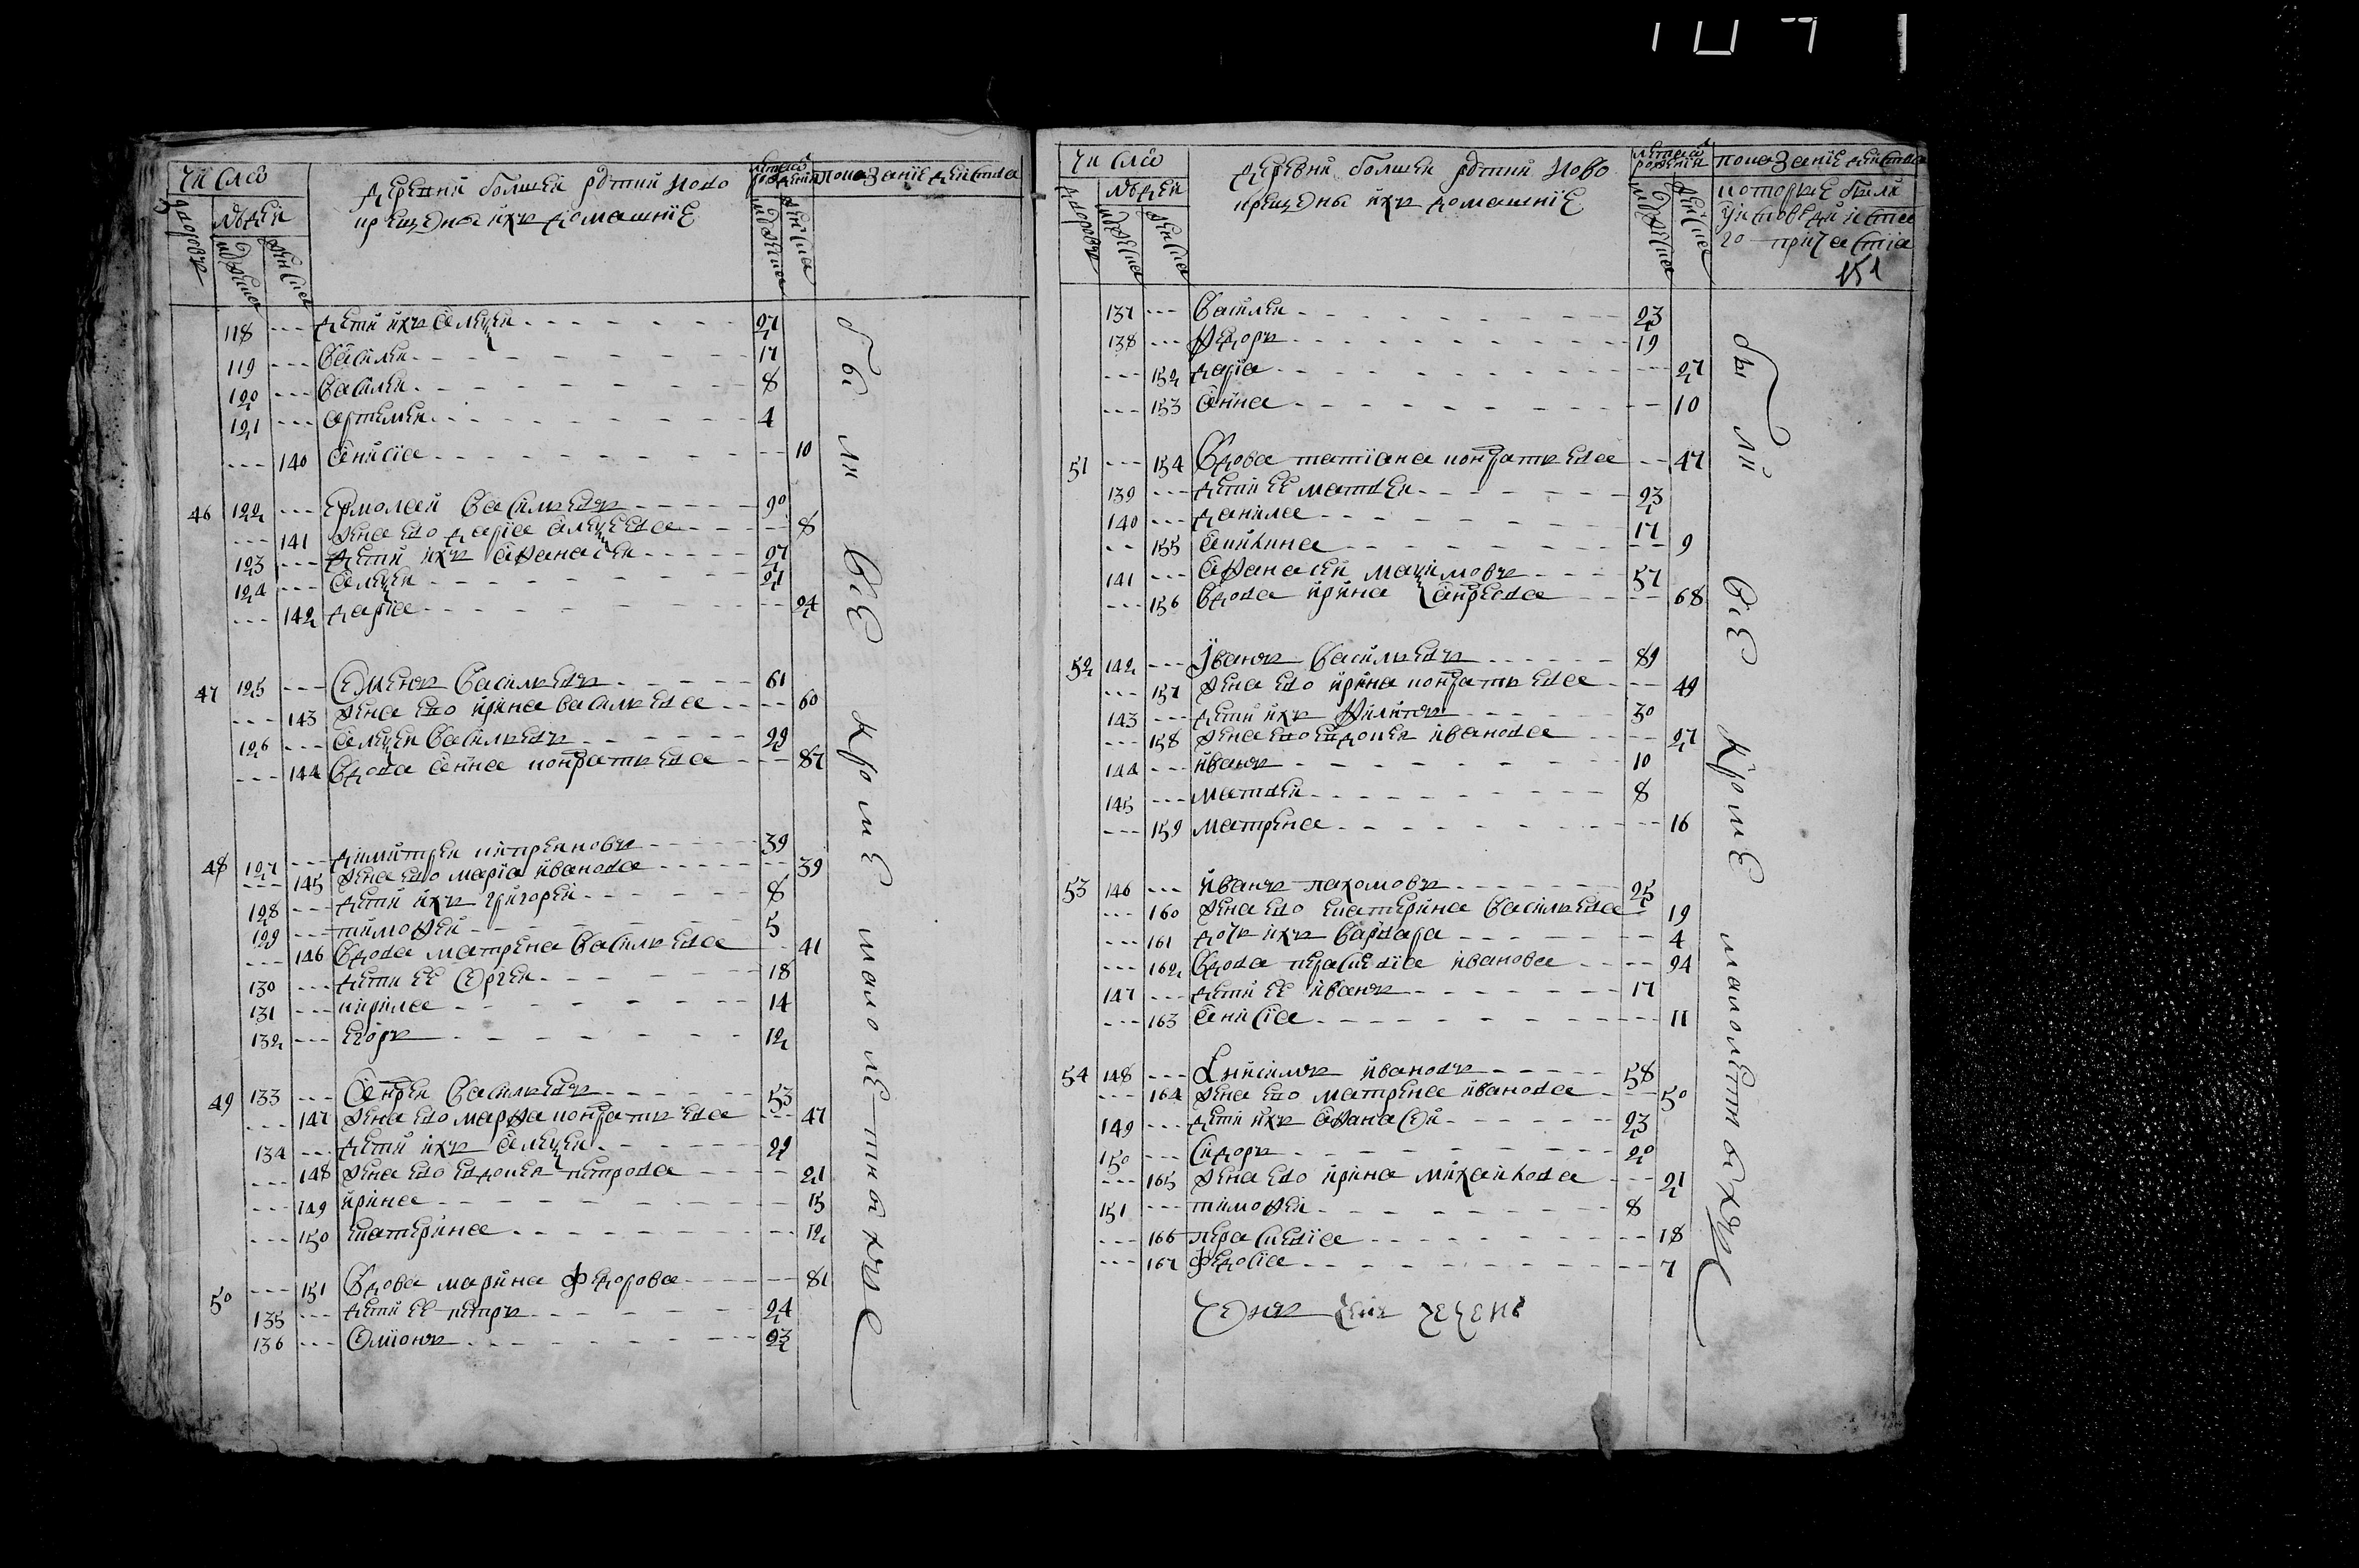 Число
дворовъ
людей
мужеска
женска
деревни болшей ртни ново
крещены ихъ домашніе
лета от рожденія
мужеска
женска
показаніе действа
118 --- дети ихъ алеѯей 27
119 --- василей 17
120 --- василей 8
121 --- артемей 4
--- 140 анисіа 10
46 122 --- ермолай васильевъ 90
--- 141 жена ево дарiа алеѯеева 8
123 --- дети ихъ афанасей 27
124 --- алеѯей 21
--- 142 дарiа 24
47 125 --- семенъ васильевъ 61
--- 143 жена ево ирина васильева 60
126 --- алеѯей васильевъ 29
--- 144 вдова анна кондратьева 87
48 127 --- димитрей 39
--- 145 жена ево маріа иванова 39
128 --- дети ихъ григорей 8
129 --- тимофей 5
--- 146 вдова матрена васильева 41
130 --- дети ее сергей 18
131 --- кирила 14
132 --- егоръ 12
49 133 --- андрей васильевъ 53
--- 147 жена ево марфа кондратьева 47
134 --- дети ихъ алеѯей 22
--- 148 жена ево евдокея петрова 21
--- 149 ирина 15
--- 150 екатерина 12
50 --- 151 вдова марина федорова 81
135 --- дети ее петръ 24
136 --- семионъ 23
были все кроме малолетныхъ
Число
дворовъ
людей
мужеска
женска
деревни болшей ртни ново
крещены ихъ домашніе
лета от рожденія
мужеска
женска
показаніе действа
которые были
у исповеди и свята
го причастіа
151
137 --- василей 23
138 --- федоръ 19
--- 152 даріа 27
--- 153 анна 10
51 --- 154 вдова татіана кондратьева 47
139 --- дети ее матвей 23
140 --- данила 17
--- 155 акилина 9
141 --- афанасей маѯимовъ 57
--- 156 вдова ирина андреева 68
52 142 --- иванъ васильевъ 89
--- 157 жена ево ирина кондратьева 49
143 --- дети ихъ филипъ 30
--- 158 жена ево евдокея иванова 27
144 --- иванъ 10
145 --- матвей 8
--- 159 матрена 16
53 146 --- иванъ пахомовъ 25
--- 160 жена ево екатерина васильева 19
--- 161 дочь ихъ варвара 4
--- 162 вдова парасковіа иванова 94
147 --- дети ее иванъ 17
--- 163 анисіа 11
54 148 --- анисимъ ивановъ 58
--- 164 жена ево матрена иванова 50
149 --- дети ихъ афанасей 23
150 --- сидоръ 20
--- 165 жена ево ирина михайлова 21
151 --- тимофей 8
--- 166 парасковіа 18
--- 167 федосіа 7
были все кроме малолетныхъ